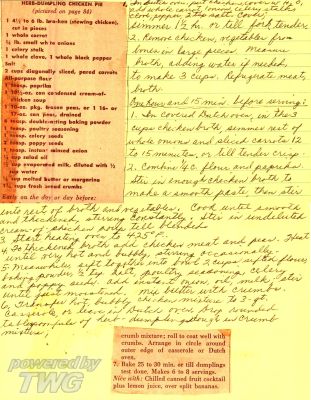 HERB-DUMPLING CHICKEN PIE
(pictured on page 84)
1 4½ to 6 lb. chicken (stewing chicken), cut in pieces
1 whole carrot
½ lb. small white onions
1 celery stalk
1 whole clove, 1 whole black pepper
Salt
2 cups diagonally sliced, pared carrots
All-purpose flour
1 teasp. paprika
1 10½-oz. can condensed cream-of-
chicken soup
1 10-oz. pkg. frozen peas, or 1 16- or
17-oz. can peas, drained
4 teasp. double-acting baking powder
1 teasp. poultry seasoning
1 teasp. celery seeds
2 teasp. poppy seeds
1 teasp. instant minced onion
¼ cup salad oil
1 cup evaporated milk, diluted with ½
cup water
¼ cup melted butter or margarine
1½ cups fresh bread crumbs
Early on the day or day before:
1. In Dutch oven put chicken, 3 cups hot
simmer 1 hour, or till fork tender.
2. Remove chicken, vegetables from
bones in large pieces. Measure
broth, adding water if needed,
to make 3 cups. Refrigerate meat,
broth
One hour and 15 min. before serving:
1. In covered Dutch oven, in the 3
cups chicken broth simmer rest of
whole onions and sliced carrots 12
to 15 minutes, or till tender crisp.
2. Combine ½ C. flour and paprika.
Stir in enough chicken broth to
make a smooth paste then stir
into rest of broth and vegetables. Cook until smooth
and thickened, stirring constantly. Stir in undiluted
cream-of-chicken soup till blended
3 Start heating oven to 425°F.
4 To thickened broth add chicken meat and peas. Heat
until very hot and bubbly, stirring occasionally
5 Meanwhile sift together into bowl 2 cups sifted flour,
baking powder ½ tsp. salt, poultry seasoning, celery
and poppy seeds. Add instant onion, oil, milk, stir
until just moistened. Mix butter with crumbs.
6. Transfer hot, bubbly chicken mixture to 3-qt.
casserole, or leave in Dutch oven. Drop rounded
tablespoonfuls of herb-dumpling dough into crumb
mixture;
crumb mixture; roll to coat well with
crumbs. Arrange in circle around
outer edge of casserole or Dutch
oven.
7. Bake 25 to 30 min. or till dumplings
test done. Makes 6 to 8 servings.
Nice with: Chilled canned fruit cocktail
plus lemon juice, over split bananas.
powered by
TWG